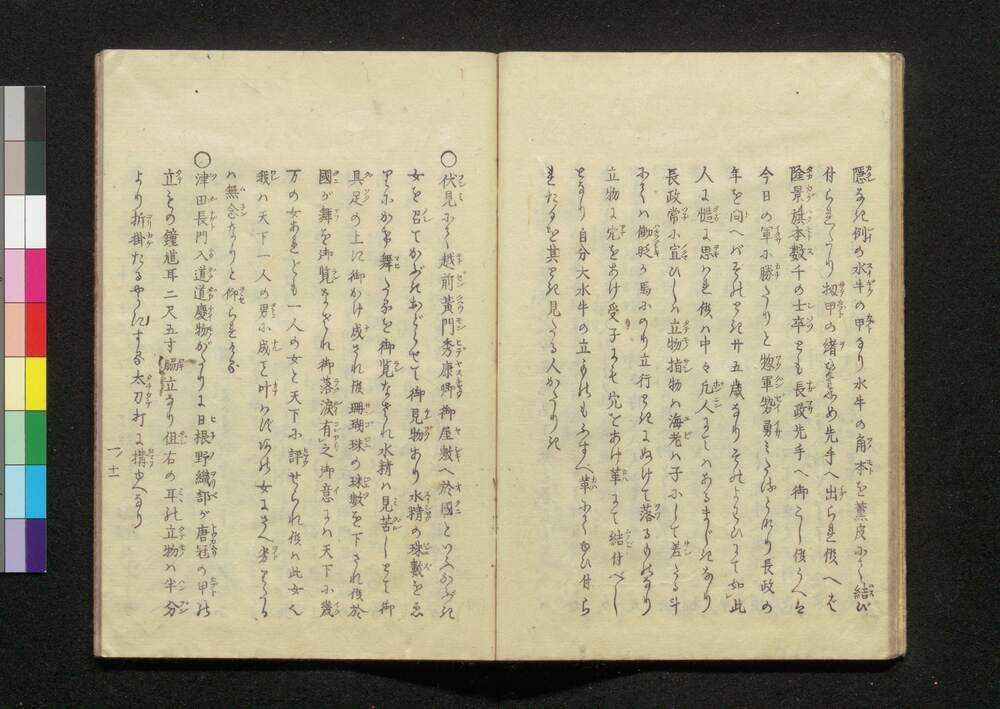 隠なき例の水牛の甲なり水牛の角本を薫皮にて結び
付られたり扨甲の緒をしめ先手へ出られ候へば
隆景旗本数千の士卒とも長政先手へ御こし候うへは
今日の軍に勝たりと惣軍勢勇
長政の
年を問へバそのとき廿五歳なりそのよはひにて如此
人に思はれ候ハ中々凡人にてハあるまじきなり
長政常に宣ひしハ立物指物ハ海老ハ子にして差たる斗
にてハ働旺の馬にのり立行ときにぬけて落るものなり
立物に穴をあけ受子にも穴をあけ革にて結付べし
となり自分大水牛の立ものもふすべ革にてゆひ付ら
れたるを其とき見たる人かたりき
○伏見にて越前黄門秀康卿御屋敷へ於國といふかぶき
女を召てかぶきおどらせて御見物あり水精の珠數をゑ
りにかけ舞たるを御覧なされ水精ハ見苦しとて御
具足の上に御かけ成され候珊瑚珠の珠數を下され候於
國が舞を御覧なされ御落涙有之御意にハ天下に幾
万の女あれども一人の女と天下に評せられ候ハ此女なり
我ハ天下一人の男に成こと叶はず此女にさへ劣りたる
ハ無念なりと仰られける
○津田長門入道道慶物がたりに日根野織部が唐冠の甲の
立もの鐘馗耳二尺五寸脇立なり但右の耳の立物ハ半分
より折掛たるやうにする太刀打に搆ゆへなり
一ノ十一